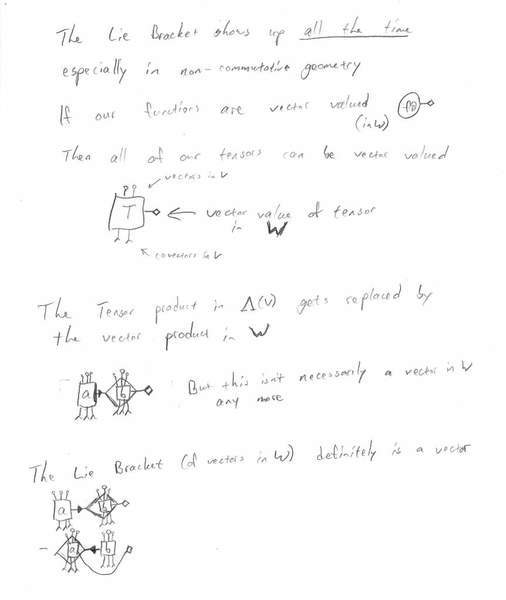 The Lie Bracket shows up all the time
especially in non-commutative geometry
If our functions are vector valued
(in W)
Then all of our tensors can be vector valued
vectors in V
T
vector value of tensor
in W
covectors in V
The Tensor product in Λ(V) gets replaced by
the vector product in W
a b
But this isn't necessarily a vector in W
any more
The Lie Bracket (of vectors in W) definitely is a vector
a b
- a b